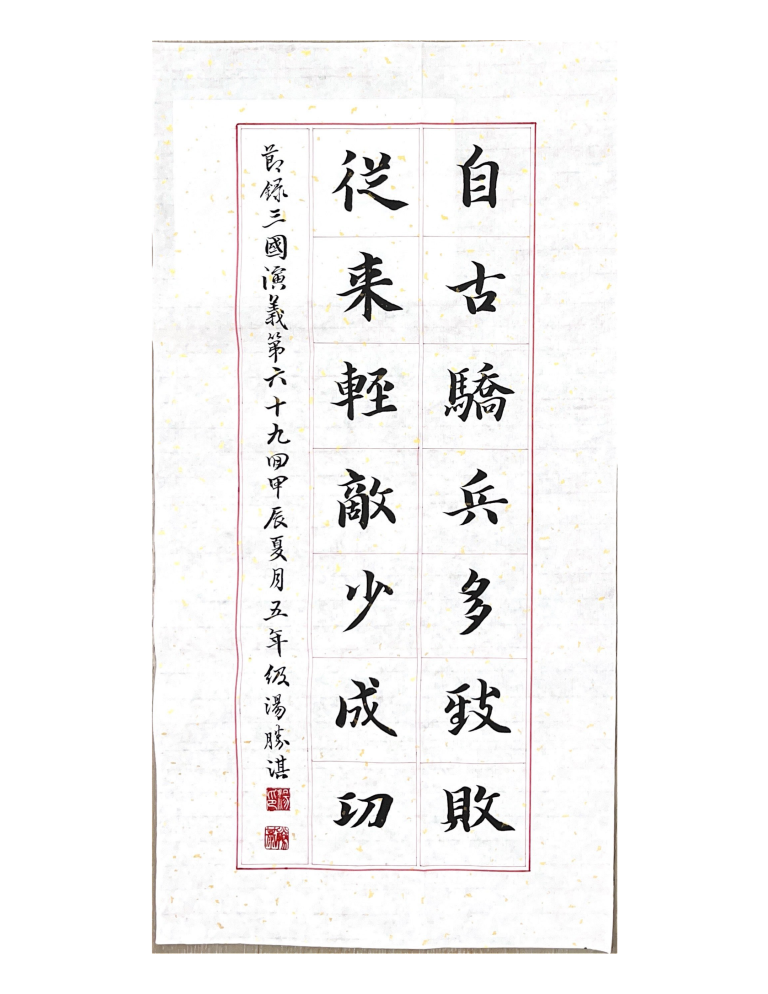 自古驕兵多致敗
從来輕敵少成功
節録三國演義第六十九回甲辰夏月五年级湯勝諶